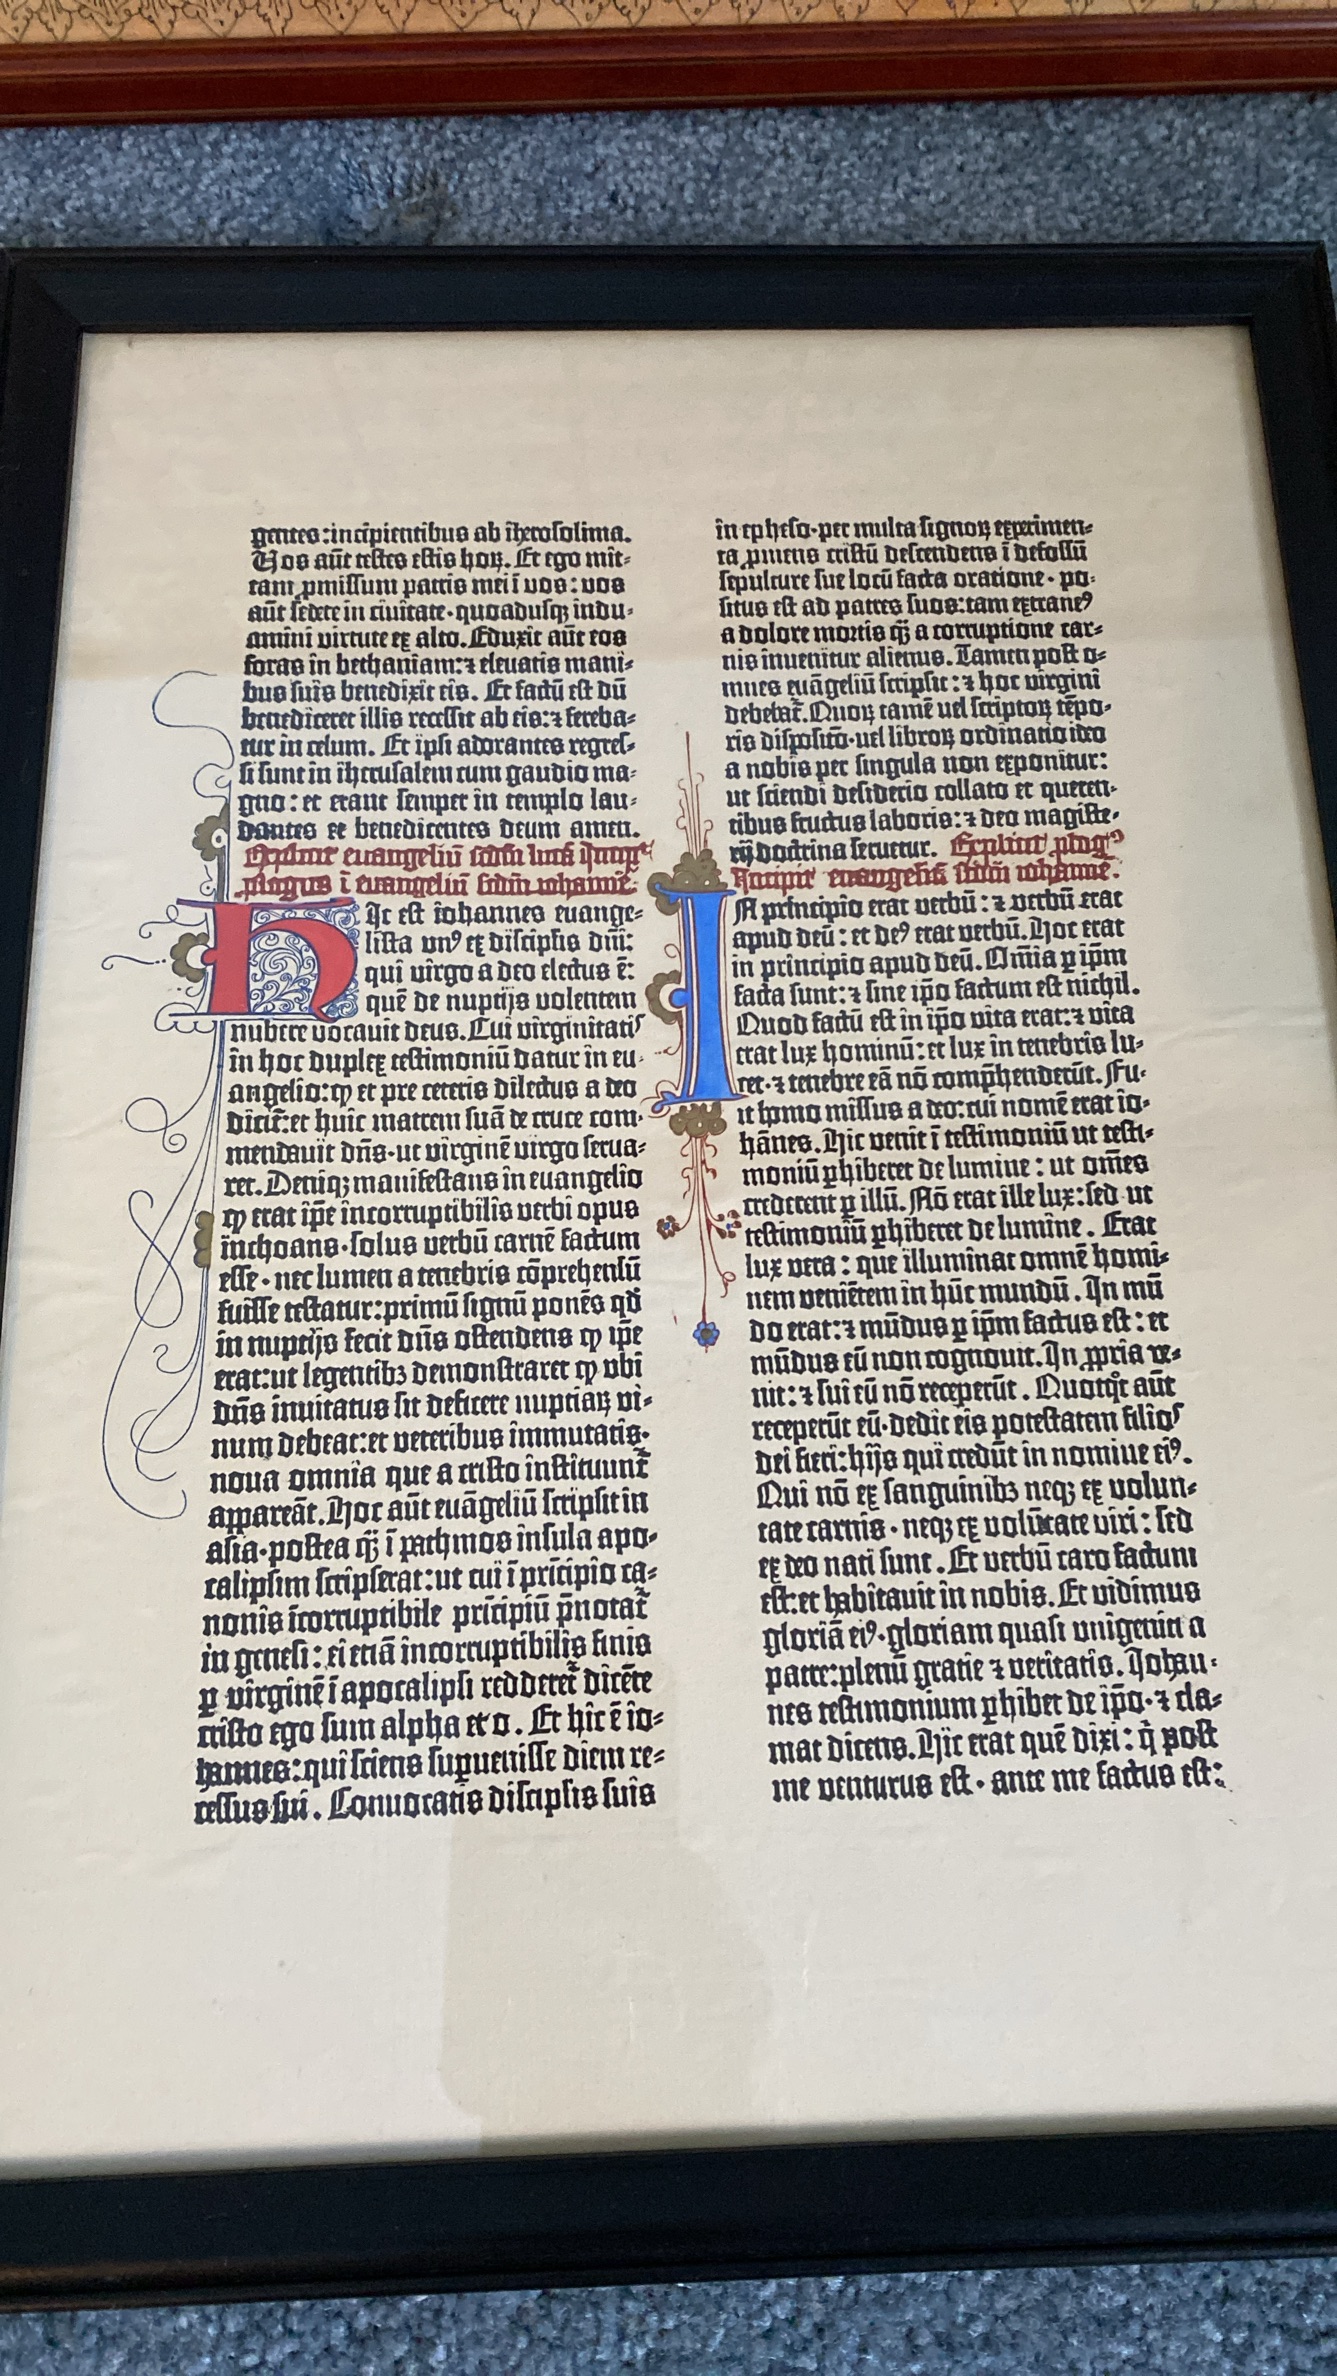 gentes:incipientibus ab iherosolima.
Vos aūt testes estis hoꝝ. Et ego mit-
tam ꝓmissum patris mei ī vos: vos
aūt sedete in civitate·quoadusqꝫ indu-
amini virtute ex alto. Eduxit aūt eos
foras in bethaniam:⁊ elevatis mani-
bus suis benedixit eis. Et factū est dū
benediceret illis recessit ab eis:⁊ fereba-
tur in celum. Et ipsi adorantes regres-
si sunt in iherusalem cum gaudio ma-
gno: et erant semper in templo lau-
dantes et benedicentes deum amen.
Explicit euangeliū scdm lucā Incipit
plogus ī euangeliū scdm iohannē.
Hic est iohannes euange-
lista unꝰ ex discipĺis dn̄i:
qui virgo a deo electus ē:
quē de nuptijs volentem
nubere vocauit deus. Cui virginitatis
in hoc duplex testimoniū datur in eu-
angelio:ꝙ et pre ceteris dilectus a deo
dicit̄:et huic matrem suā de cruce com-
mendauit dn̄s·ut virginē virgo serua-
ret. Deniqꝫ manifestans in euangelio
ꝙ erat ip̄e incorruptibilis verbi opus
inchoans·solus verbū carnē factum
esse·nec lumen a tenebris cōprehensū
fuisse testatur:primū signū ponēs qd̄
in nuptijs fecit dn̄s ostendens ꝙ ip̄e
erat:ut legentibꝫ demonstraret ꝙ ubi
dn̄s inuitatus sit deficere nuptiaꝝ vi-
num debeat:et veteribus immutatis·
noua omnia que a cristo instituunt̄
appareāt. Hoc aūt euāgeliū scripsit in
asia·postea qꝫ̄ ī pathmos insula apo-
calipsim scripserat:ut cui ī prīcipio ca-
nonis īcorruptibile prīcipiū p̄notat̄
in genesi: ei etiā incorruptibilis finis
ꝑ virginē ī apocalipsi redderet̄ dicēte
cristo ego sum alpha et o. Et hic ē io-
hannes:qui sciens supueniſſe diem re-
cessus sui. Conuocatis discipĺis suis
in epheso·per multa signoꝝ experimen-
ta ꝓmens cristū descendens ī defossū
sepulture sue locū facta oratione·po-
situs est ad patres suos:tam extraneꝰ
a dolore mortis qꝫ̄ a corruptione car-
nis inuenitur alienus. Tamen post o-
mnes euāgeliū scripsit:⁊ hoc virgini
debebat̄. Quoꝝ tamē uel scriptoꝝ tēpo-
ris dispositō·uel libroꝝ ordinatio ideo
a nobis per singula non exponitur:
ut sciendi desiderio collato et queren-
tibus fructus laboris:⁊ deo magiste-
rij doctrina seruetur. Explicit plogꝰ
Incipit euangeliū scdm iohannē.
IN principio erat verbū:⁊ verbū erat
apud deū: et deꝰ erat verbū. Hoc erat
in principio apud deū. Om̄ia ꝑ ip̄m
facta sunt:⁊ sine ip̄o factum est nichil.
Quod factū est in ip̄o vita erat:⁊ vita
erat lux hominū:et lux in tenebris lu-
cet·⁊ tenebre eā nō comp̄henderūt. Fu-
it homo missus a deo:cui nomē erat io-
hānes. Hic venit ī testimoniū ut testi-
moniū ꝑhiberet de lumine: ut om̄es
crederent ꝑ illū. Nō erat ille lux:sed ut
testimoniū ꝑhiberet de lumine. Erat
lux vera: que illuminat omnē homi-
nem veniētem in hūc mundū. In mū
do erat:⁊ mūdus ꝑ ip̄m factus est: et
mūdus eū non cognouit. In ꝓpria ve-
nit:⁊ sui eū nō receperūt. Quotqͦt aūt
receperūt eū·dedit eis potestatem filios
dei fieri:hijs qui credūt in nomine eiꝰ.
Qui nō ex sanguinibꝫ neqꝫ ex volun-
tate carnis·neqꝫ ex volūtate viri: sed
ex deo nati sunt. Et verbū caro factum
est:et habitauit in nobis. Et vidimus
gloriā eiꝰ·gloriam quasi unigeniti a
patre:plenū gratie ⁊ veritatis. Johan-
nes testimonium ꝑhibet de ip̄o·⁊ cla-
mat dicens. Hic erat quē dixi: q̇ post
me venturus est·ante me factus est: